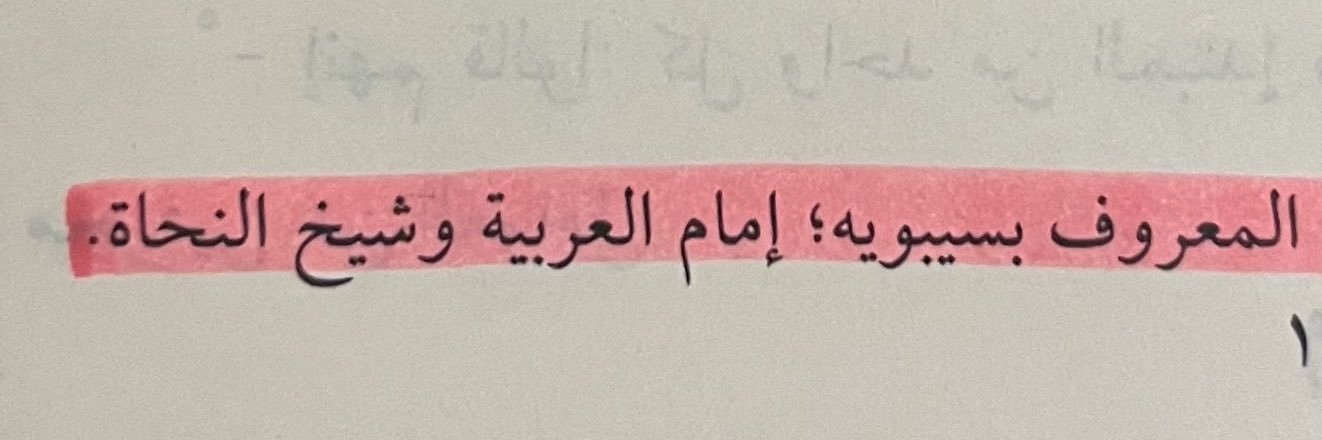 المعروف بسيبويه؛ إمام العربية وشيخ النحاة.
١